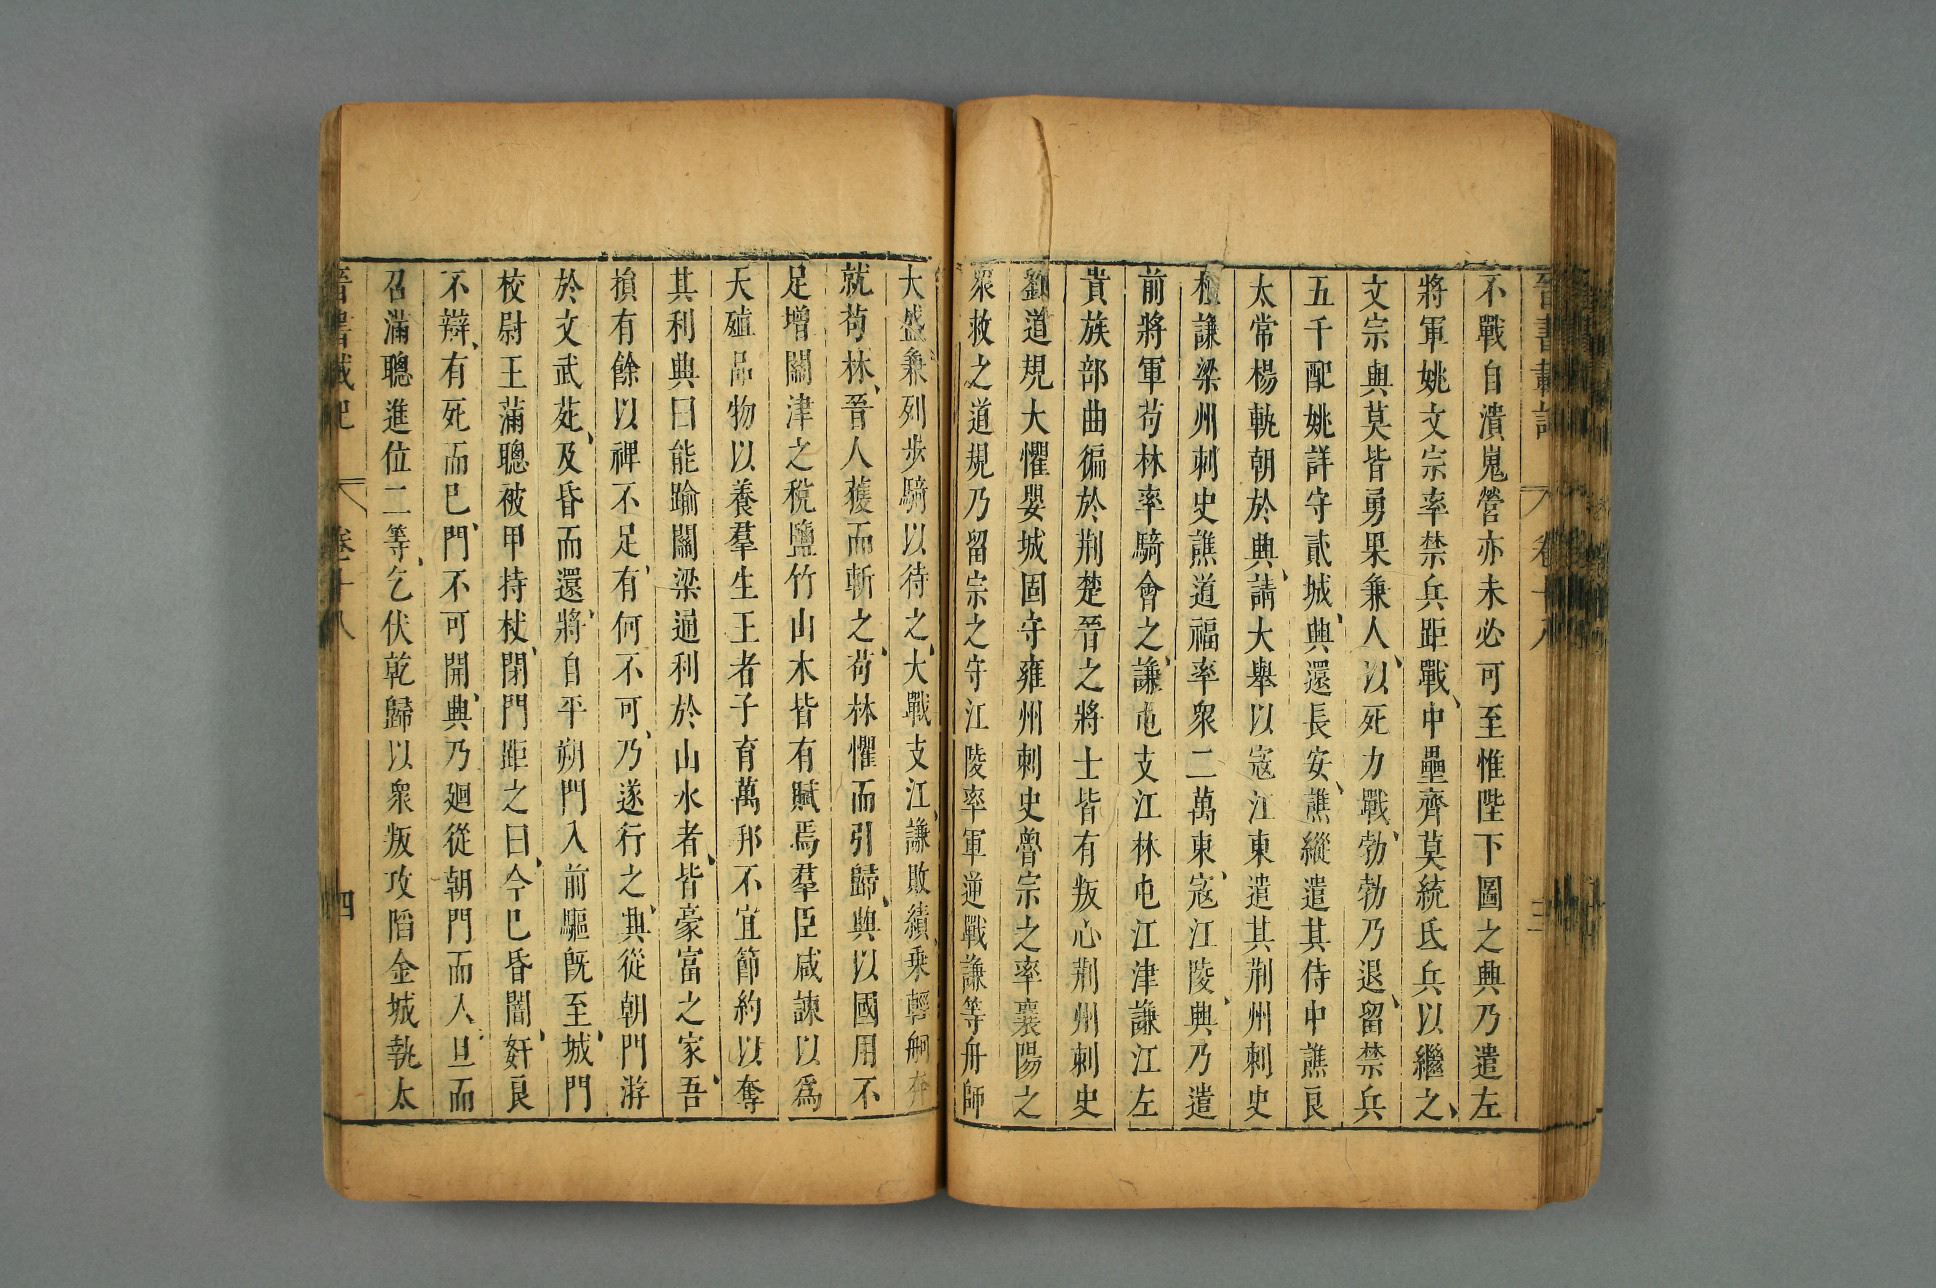 晉書載記 卷十八 三
不戰自潰嵬營亦未必可至惟陛下圖之興乃遣左
將軍姚文宗率禁兵距戰中壘齊莫統氐兵以繼之
文宗與莫皆勇果兼人以死力戰勃勃乃退留禁兵
五千配姚詳守貳城興還長安譙縱遣其侍中譙良
太常楊軌朝於興請大舉以寇江東遣其荊州刺史
桓謙梁州刺史譙道福率衆二萬東寇江陵興乃遣
前將軍苟林率騎會之謙屯支江林屯江津謙江左
貴族部曲徧於荊楚晉之將士皆有叛心荊州刺史
劉道規大懼嬰城固守雍州刺史魯宗之率襄陽之
衆救之道規乃留宗之守江陵率軍逆戰謙等舟師
大盛兼列步騎以待之大戰支江謙敗績乘輕舸奔
就苟林晉人獲而斬之苟林懼而引歸興以國用不
足增關津之稅鹽竹山木皆有賦焉羣臣咸諫以爲
天殖品物以養羣生王者子育萬邦不宜節約以奪
其利興曰能踰關梁通利於山水者皆豪富之家吾
損有餘以裨不足有何不可乃遂行之興從朝門游
於文武苑及昏而還將自平朔門入前驅既至城門
校尉王蒲聰被甲持杖閉門距之曰今已昏闇姧良
不辯有死而已門不可開興乃廻從朝門而入旦而
召滿聰進位二等乞伏乾歸以衆叛攻陷金城執太
晉書載記 卷十八 四